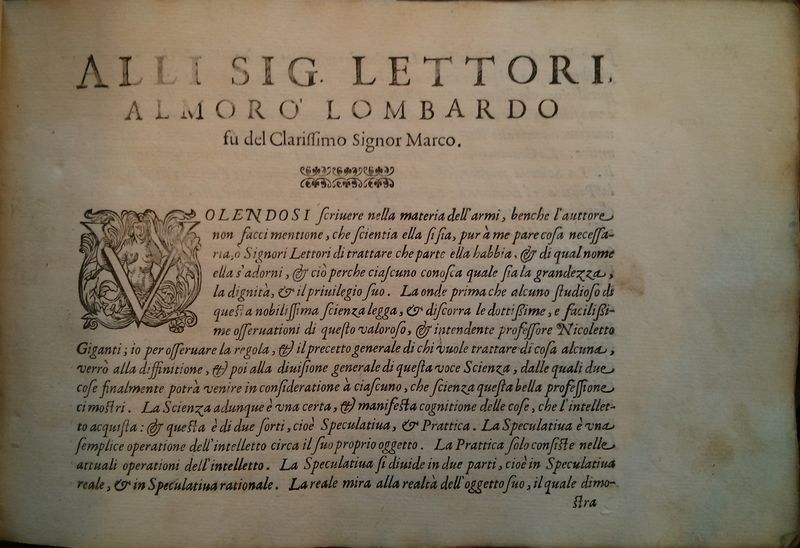 ALLI SIG. LETTORI.
ALMORO' LOMBARDO
fù del Clarissimo Signor Marco.
VOLENDOSI scriuere nella materia dell'armi, benche l'auttore
non facci mentione, che scientia ella si sia, pur à me pare cosa necessa-
ria, ò Signori Lettori di trattare che parte ella habbia, & di qual nome
ella s'adorni, & ciò perche ciascuno conosca quale sia la grandezza,
la dignità, & il priuilegio suo. La onde prima che alcuno studioso di
questa nobilissima scienza legga, & discorra le dottissime, e facilissi-
me osseruationi di questo valoroso, & intendente professore Nicoletto
Giganti; io per osseruare la regola, & il precetto generale di chi vuole trattare di cosa alcuna,
verrò alla diffinitione, & poi alla diuisione generale di questa voce Scienza, dalle quali due
cose finalmente potrà venire in consideratione à ciascuno, che scienza questa bella professione
ci mostri. La Scienza adunque è vna certa, & manifesta cognitione delle cose, che l'intellet-
to acquista: & questa è di due sorti, cioè Speculatiua, & Prattica. La Speculatiua è vna
semplice operatione dell'intelletto circa il suo proprio oggetto. La Prattica solo consiste nelle
attuali operationi dell'intelletto. La Speculatiua si diuide in due parti, cioè in Speculatiua
reale, & in Speculatiua rationale. La reale mira alla realtà dell'oggetto suo, il quale dimo-
stra